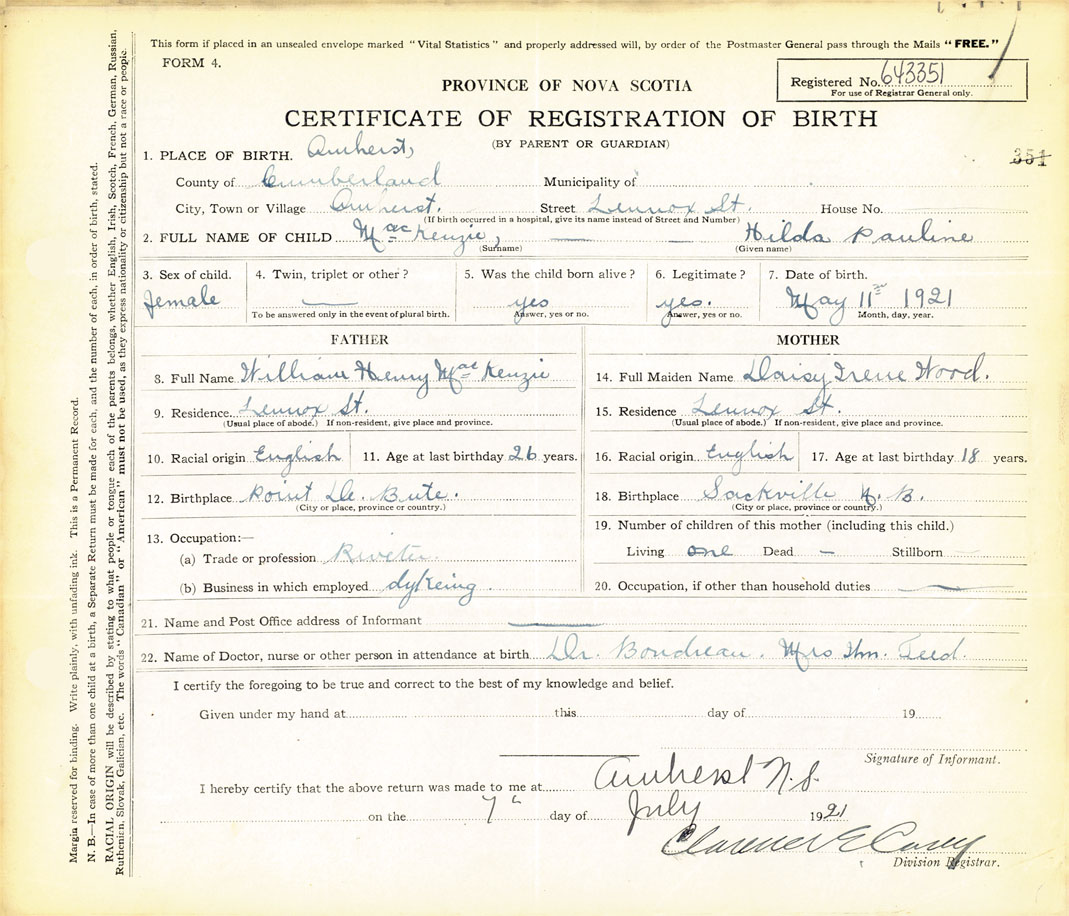 This form if placed in an unsealed envelope marked "Vital Statistics" and properly addressed will, by order of the Postmaster General pass through the Mails "FREE."
FORM 4.
Registered No. 643351
For use of Registrar General only.
PROVINCE OF NOVA SCOTIA
CERTIFICATE OF REGISTRATION OF BIRTH
(BY PARENT OR GUARDIAN)
351
1. PLACE OF BIRTH. Amherst,
County of Cumberland Municipality of
City, Town or Village Amherst. Street Lennox St. House No.
(If birth occurred in a hospital, give its name instead of Street and Number)
2. FULL NAME OF CHILD MacKenzie, — Hilda Pauline
(Surname) (Given name)
3. Sex of child. 4. Twin, triplet or other? 5. Was the child born alive? 6. Legitimate? 7. Date of birth.
female — yes yes. May 11th 1921
To be answered only in the event of plural birth. Answer, yes or no. Answer, yes or no. Month, day, year.
FATHER MOTHER
8. Full Name William Henry MacKenzie 14. Full Maiden Name Daisy Irene Wood.
9. Residence Lennox St. 15. Residence Lennox St.
(Usual place of abode.) If non-resident, give place and province. (Usual place of abode.) If non-resident, give place and province.
10. Racial origin English 11. Age at last birthday 26 years. 16. Racial origin English 17. Age at last birthday 18 years.
12. Birthplace Point De. Bute. 18. Birthplace Sackville N. B.
(City or place, province or country.) (City or place, province or country.)
13. Occupation:— 19. Number of children of this mother (including this child.)
(a) Trade or profession Riveter Living one Dead — Stillborn
(b) Business in which employed dykeing. 20. Occupation, if other than household duties —
21. Name and Post Office address of Informant —
22. Name of Doctor, nurse or other person in attendance at birth Dr. Boudreau. Mrs Wm. Teed.
I certify the foregoing to be true and correct to the best of my knowledge and belief.
Given under my hand at this day of 19
Signature of Informant.
I hereby certify that the above return was made to me at Amherst N.S.
on the 7th day of July 1921
Clarence E Casey
Division Registrar.
Margin reserved for binding. Write plainly, with unfading ink. This is a Permanent Record.
N. B.—In case of more than one child at a birth, a Separate Return must be made for each, and the number of each, in order of birth, stated.
RACIAL ORIGIN will be described by stating to what people or tongue each of the parents belongs, whether English, Irish, Scotch, French, German, Russian,
Ruthenien, Slovak, Galician, etc. The words "Canadian" or "American" must not be used, as they express nationality or citizenship but not a race or people.